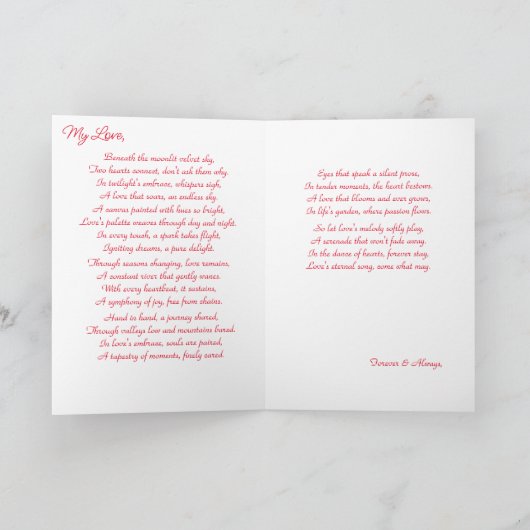 My Love,
Beneath the moonlit velvet sky,
Two hearts connect, don't ask them why.
In twilight's embrace, whispers sigh,
A love that soars, an endless sky.
A canvas painted with hues so bright,
Love's palette weaves through day and night.
In every touch, a spark takes flight,
Igniting dreams, a pure delight.
Through seasons changing, love remains,
A constant river that gently wanes.
With every heartbeat, it sustains,
A symphony of joy, free from chains.
Hand in hand, a journey shared,
Through valleys low and mountains bared.
In love's embrace, souls are paired,
A tapestry of moments, finely cared.
Eyes that speak a silent prose,
In tender moments, the heart bestows.
A love that blooms and ever grows,
In life's garden, where passion flows.
So let love's melody softly play,
A serenade that won't fade away.
In the dance of hearts, forever stay,
Love's eternal song, come what may.
Forever & Always,